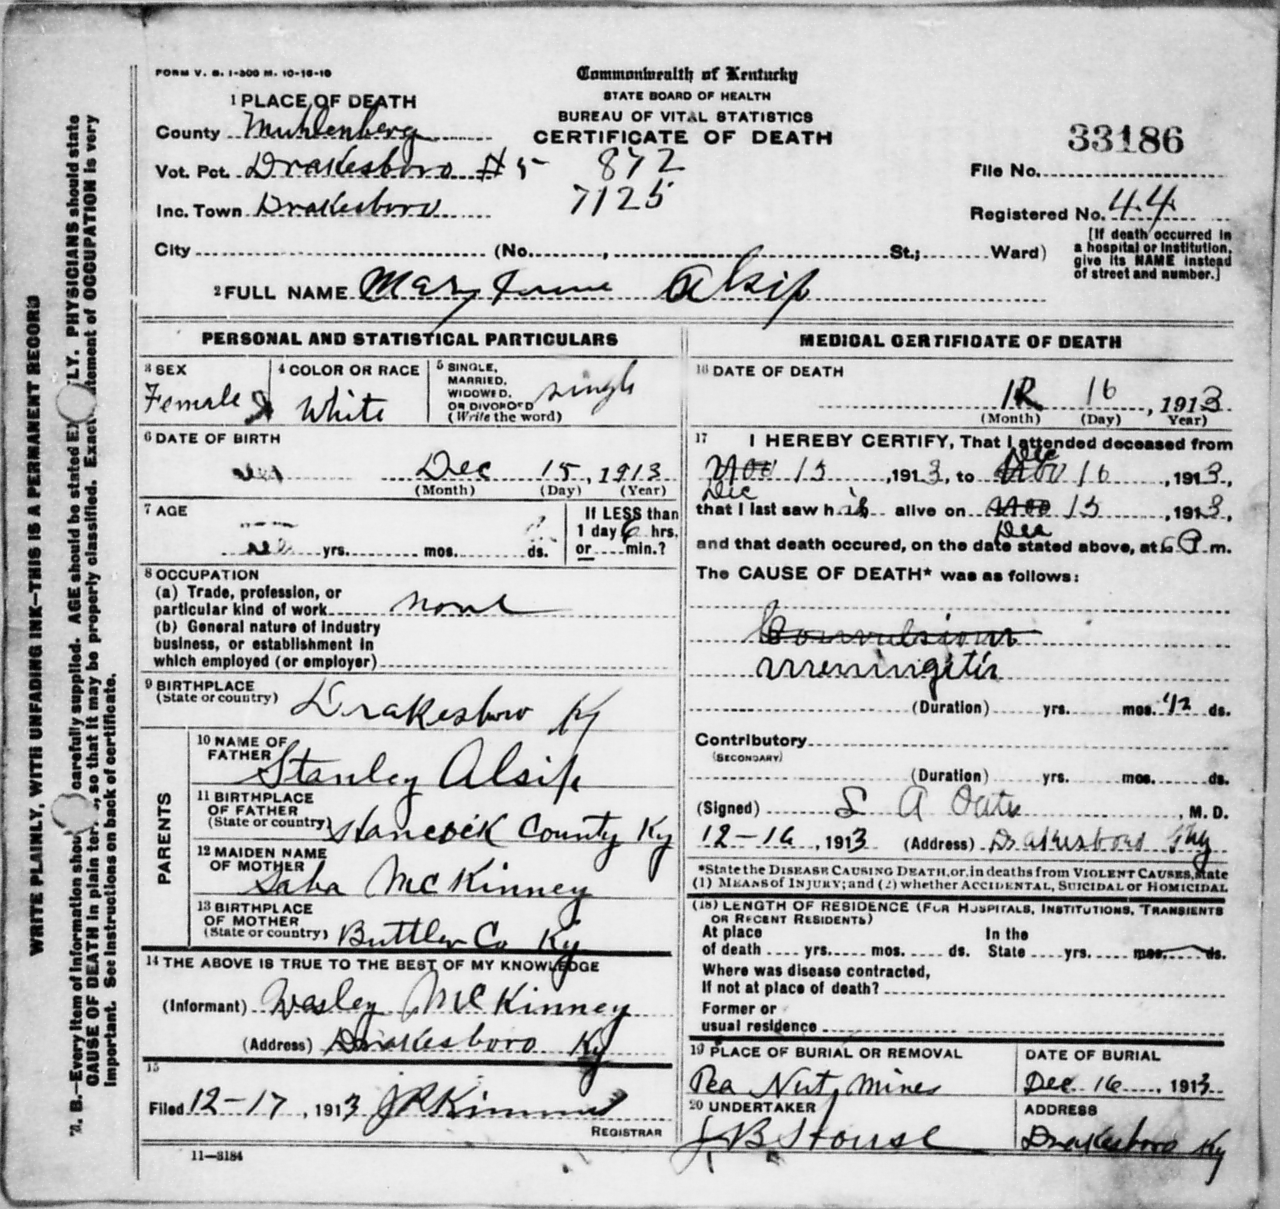 FORM V. S. 1-300 M. 10-16-10
Commonwealth of Kentucky
STATE BOARD OF HEALTH
BUREAU OF VITAL STATISTICS
CERTIFICATE OF DEATH
33186
1 PLACE OF DEATH
County Muhlenberg
Vot. Pct. Drakesboro #5 872
File No.
Inc. Town Drakesboro 7125
Registered No. 44
City (No. , St.; Ward)
[If death occurred in
a hospital or institution,
give its NAME instead
of street and number.]
2 FULL NAME Mary Alsip
PERSONAL AND STATISTICAL PARTICULARS
3 SEX
Female
4 COLOR OR RACE
White
5 SINGLE,
MARRIED,
WIDOWED,
OR DIVORCED
(Write the word)
single
6 DATE OF BIRTH
Dec 15, 1913
(Month) (Day) (Year)
7 AGE
yrs. mos. ds.
If LESS than
1 day 6 hrs.
or min.?
8 OCCUPATION
(a) Trade, profession, or
particular kind of work none
(b) General nature of industry
business, or establishment in
which employed (or employer)
9 BIRTHPLACE
(State or country) Drakesboro Ky
PARENTS
10 NAME OF
FATHER Stanley Alsip
11 BIRTHPLACE
OF FATHER
(State or country) Hancock County Ky
12 MAIDEN NAME
OF MOTHER Saba McKinney
13 BIRTHPLACE
OF MOTHER
(State or country) Buttler Co Ky
14 THE ABOVE IS TRUE TO THE BEST OF MY KNOWLEDGE
(Informant) Wesley McKinney
(Address) Drakesboro Ky
15
Filed 12-17, 1913 J P Kimmel
REGISTRAR
11-3184
MEDICAL CERTIFICATE OF DEATH
16 DATE OF DEATH
12 16, 1913
(Month) (Day) Year)
17 I HEREBY CERTIFY, That I attended deceased from
Dec
Nov 15, 1913, to Nov 16, 1913,
Dec
that I last saw h is alive on Nov 15, 1913,
Dec
and that death occured, on the date stated above, at 6 P. m.
The CAUSE OF DEATH* was as follows:
Convulsions
meningitis
(Duration) yrs. mos. 1/2 ds.
Contributory
(SECONDARY)
(Duration) yrs. mos. ds.
(Signed) A Oates, M. D.
12-16, 1913 (Address) Drakesboro Ky
*State the DISEASE CAUSING DEATH, or, in deaths from VIOLENT CAUSES, state
(1) MEANS of INJURY; and (2) whether ACCIDENTAL, SUICIDAL or HOMICIDAL
(18) LENGTH OF RESIDENCE (FOR HOSPITALS, INSTITUTIONS, TRANSIENTS
OR RECENT RESIDENTS)
At place In the
of death yrs. mos. ds. State yrs. mos. ds.
Where was disease contracted,
If not at place of death?
Former or
usual residence
19 PLACE OF BURIAL OR REMOVAL
Pea Nut Mines
DATE OF BURIAL
Dec 16, 1913
20 UNDERTAKER
J B House
ADDRESS
Drakesboro Ky
WRITE PLAINLY, WITH UNFADING INK—THIS IS A PERMANENT RECORD
N. B.—Every item of information should carefully supplied. AGE should be stated EX LY. PHYSICIANS should state
CAUSE OF DEATH in plain ter , so that it may be properly classified. Exact tement of OCCUPATION is very
important. See instructions on back of certificate.